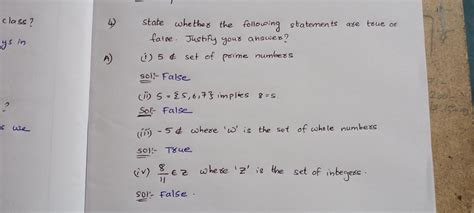 class?
ys in
?
s we
4) State whether the following statements are true or
false. Justify your answer?
A) (i) 5 ∉ set of prime numbers
sol:- False
(ii) S = {5,6,7} implies 8=s
Sol:- False
(iii) -5 ∉ where 'w' is the set of whole numbers
sol:- True
(iv) 8/11 ∈ Z where 'Z' is the set of integers.
Sol:- False.